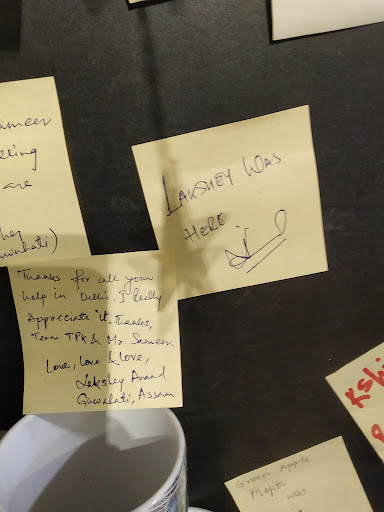 ameer
eling
are
wahati)
LAKSHEY WAS
HERE
Thanks for all your
help in Delhi. I Really
Appreciate it. Thanks,
Team TPK & Mr. Sameer.
Love, Love & Love,
Lakshey Anand
Guwahati, Assam
Kshi
Green Apple
Mojito
was